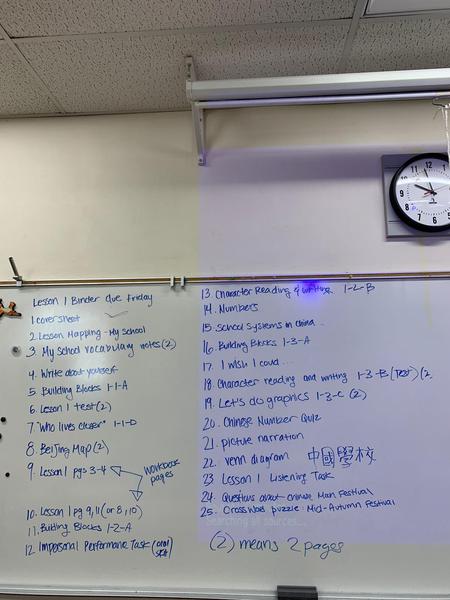 Lesson 1 Binder due Friday
1 cover sheet
2. Lesson Mapping - My School
3. My school vocabulary notes (2)
4. Write about yourself
5. Building Blocks 1-1-A
6. Lesson 1 test (2)
7. "Who lives closer" 1-1-D
8. BeiJing Map (2)
9. Lesson 1 pgs 3-4
workbook pages
10. Lesson 1 pg 9, 11 (or 8, 10)
11. Building Blocks 1-2-A
12 Impersonal Performance Task (oral
13. Character Reading & writing 1-2-B
14. Numbers
15. School Systems in China
16. Building Blocks 1-3-A
17. I wish I could...
18. Character reading and writing 1-3-B (Test) (2)
19. Let's do graphics 1-3-C (2)
20. Chinese Number Quiz
21. picture narration
22. venn diagram 中國學校
23 Lesson 1 Listening Task
24. Questions about Chinese Moon Festival
25. Crossword puzzle: Mid-Autumn Festival
Searching all sources...
(2) means 2 pages
12 11 10 9 8 7 6 5